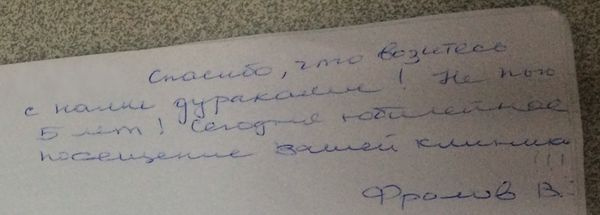 Спасибо, что возитесь
с нами дураками! Не пью
5 лет! Сегодня юбилейное
посещение вашей клиники
!!!
Фролов В.